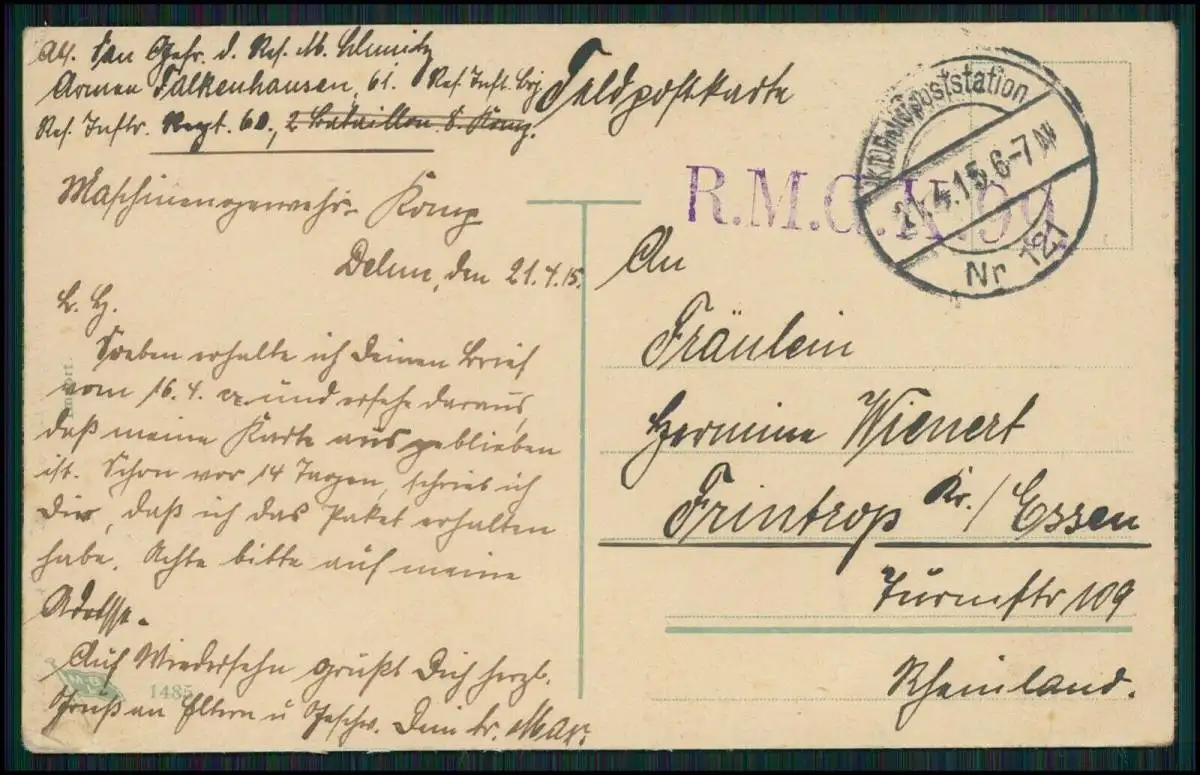 Abs. San Gefr. d. Res. M. Schmitz
Armee Falkenhausen, 61. Res. Inft. Brg.
Res. Inftr. Regt. 60., 2 Bataillon 8. Komp.
Maschinengewehr- Komp
Feldpostkarte
R.M.G.K. 99
Feldpoststation
21.4.15. 6-7 N
Nr 121
Delme, den 21.4.15.
L. H.
Soeben erhalte ich Deinen Brief
vom 16. 4. cr und ersehe daraus,
daß meine Karte ausgeblieben
ist. Schon vor 14 Tagen, schrieb ich
Dir, daß ich das Paket erhalten
habe. Achte bitte auf meine
Adresse.
Auf Wiedersehn grüßt Dich herzl.
Gruß an Eltern u Geschw. Dein br. Max.
1485
An
Fräulein
Hermine Wienert
Frintrop Kr. / Essen
Turmstr 109
Rheinland.